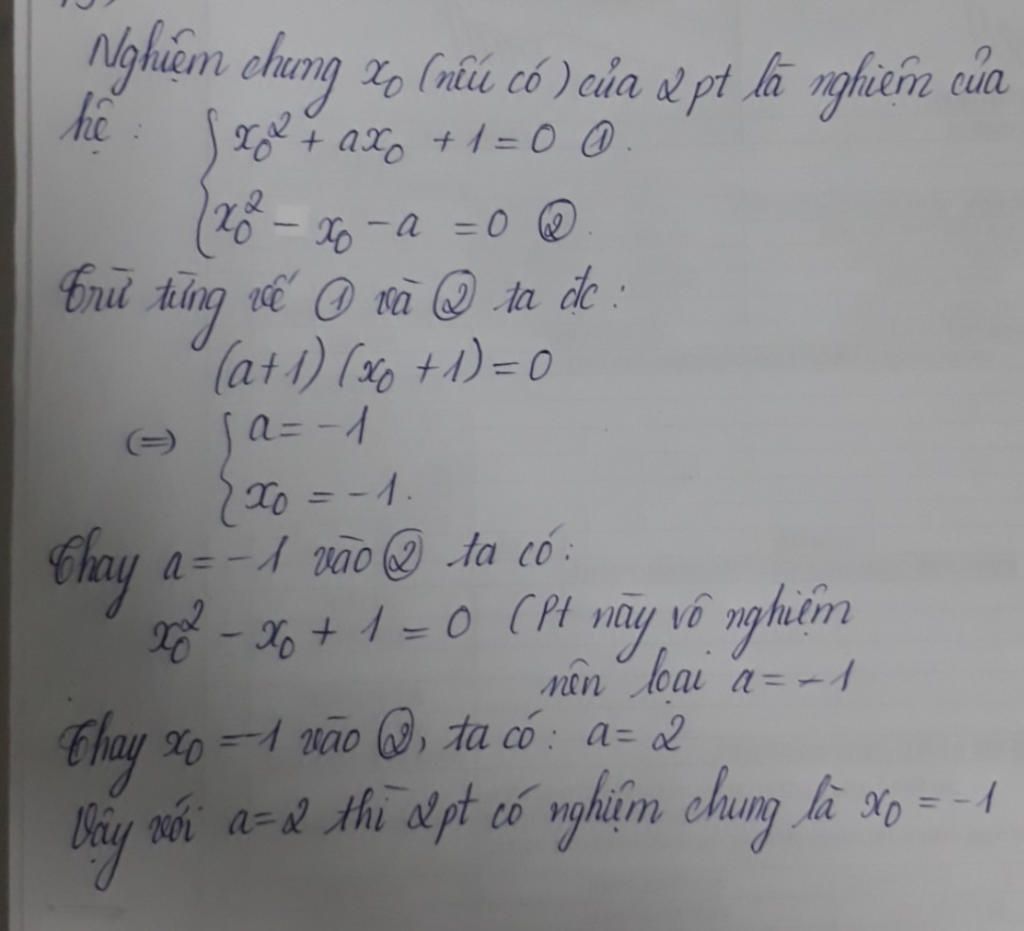 Nghiệm chung x₀ (nếu có) của 2 pt là nghiệm của
hệ: { x₀² + ax₀ + 1 = 0 ①.
{ x₀² - x₀ - a = 0 ②.
Trừ từng vế ① và ② ta đc:
(a+1) (x₀ + 1) = 0
(=) { a = -1
{ x₀ = -1.
Thay a = -1 vào ② ta có:
x₀² - x₀ + 1 = 0 (Pt này vô nghiệm
nên loại a = -1
Thay x₀ = -1 vào ②, ta có: a = 2
Vậy với a = 2 thì 2pt có nghiệm chung là x₀ = -1